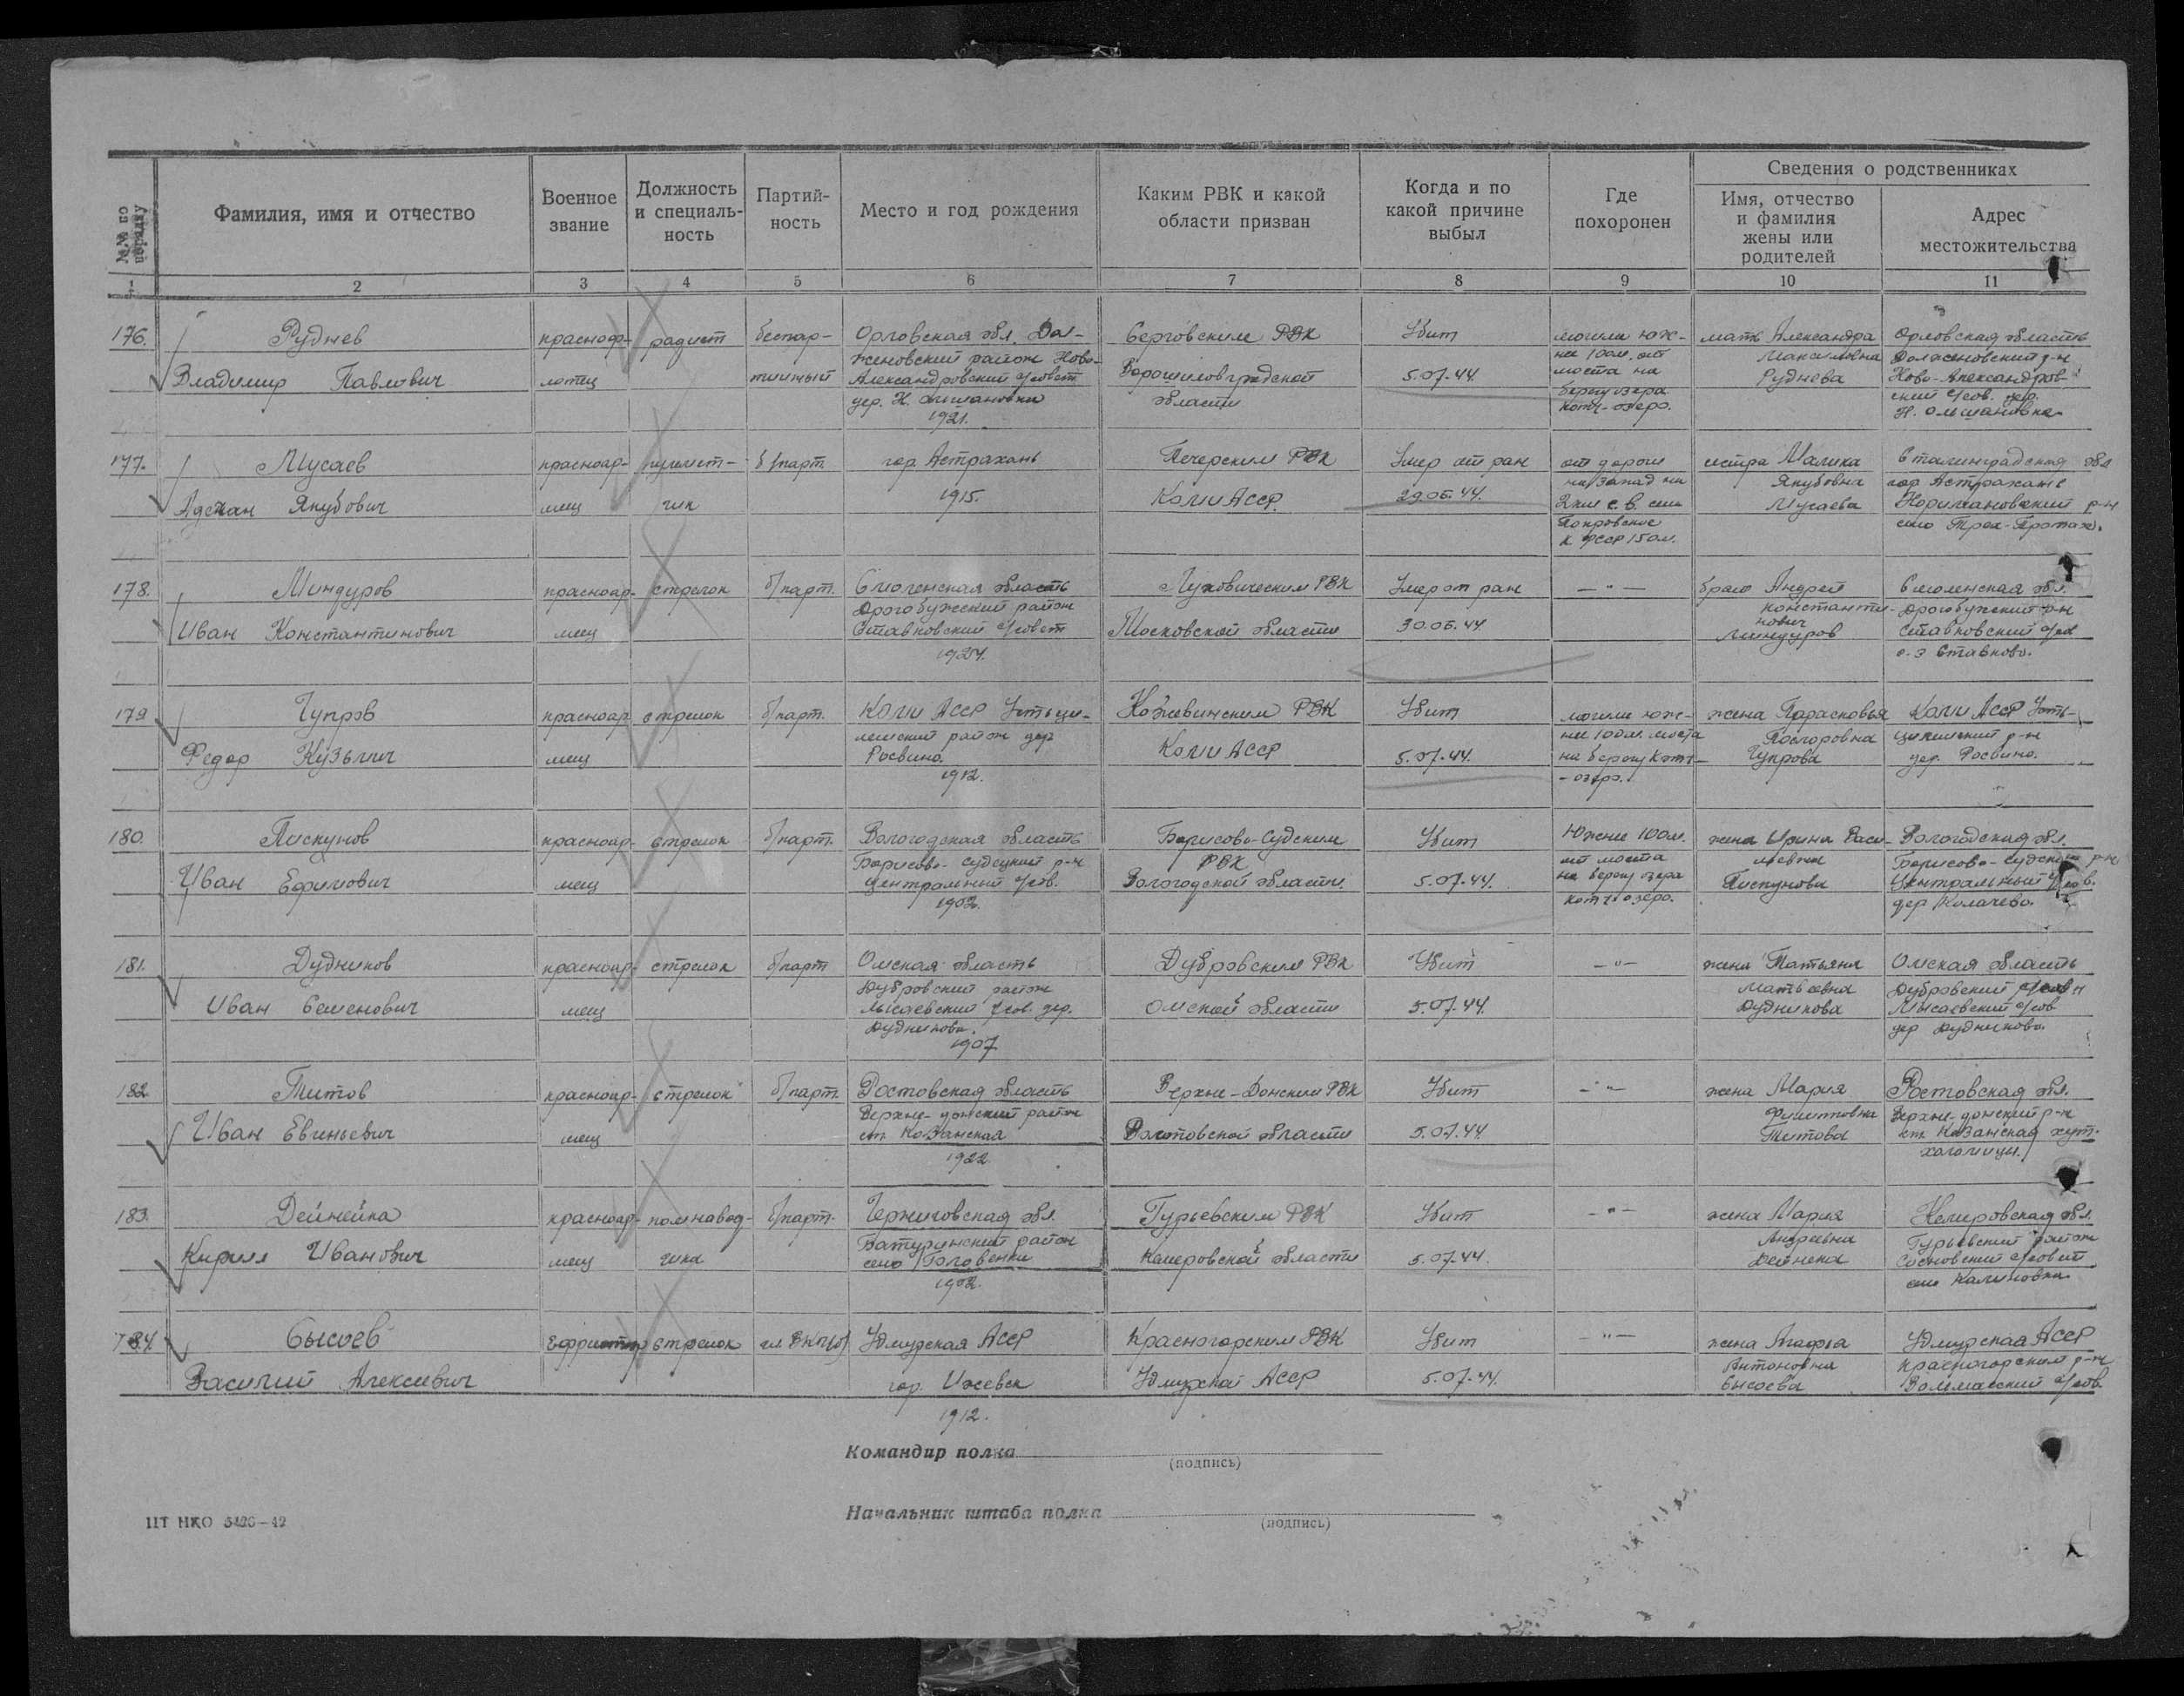 №№ по порядку
Фамилия, имя и отчество
Военное звание
Должность и специаль-ность
Партий-ность
Место и год рождения
Каким РВК и какой области призван
Когда и по какой причине выбыл
Где похоронен
Сведения о родственниках
Имя, отчество и фамилия жены или родителей
Адрес местожительства
1 2 3 4 5 6 7 8 9 10 11
176. Руднев красноар- радист беспар- Орловская обл. Дол- Серговским РВК Убит могила юж- мать Александра Орловская область
жановский район Ново- нее 100м. от Максимовна Должановский р-н
Владимир Павлович тийный Александровский с/совет Ворошиловградской 5.07.44. моста на Руднева Ново-Александров-
дер. Н. Ольшановка области берегу озера ский с/сов. дер.
1921. озеро. Н. Ольшановка
177. Мусаев красноар- пулемет- б/парт. гор. Астрахань Печерским РВК Умер от ран от дороги сестра Малика Сталинградская обл
на запад на Якубовна гор Астрахань
Якубович мец чик 1915. Коми АССР. 29.06.44. 2км с.в. села Мусаева р-н
Покровское село Трех-Протак.
150м.
178. Миндуров красноар- стрелок б/парт. Смоленская область Луховическим РВК Умер от ран — " — брат Андрей Смоленская обл.
Дорогобужский район Константи- Дорогобужский р-н
Иван Константинович мец Ставковский с/совет Московской области 30.06.44 нович Ставковский с/сов
1924. Миндуров с. Ставково.
179 Чупров красноар стрелок б/парт. Коми АССР Усть-ци- Кожвинским РВК Убит могила юж- жена Парасковья Коми АССР Усть-
лемский район дер нее 100м. моста цилемский р-н
Федор Кузьмич мец Росвино. Коми АССР 5.07.44. на берегу Чупрова дер. Росвино.
1912. - озеро.
180. Пискунов красноар- стрелок б/парт. Вологодская область Борисово-Судским Убит Южнее 100м. жена Ирина Васи- Вологодская обл.
Борисово-Судский р-н РВК от моста льевна Борисово-Судский р-н
Иван Ефимович мец Центральный с/сов. Вологодской области. 5.07.44. на берегу озера Пискунова Центральный с/сов.
1902. озеро. дер Колачево.
181. Дудников красноар- стрелок б/парт Омская область Дубровским РВК Убит — " — жена Татьяна Омская область
Дубровский район Матвеевна Дубровский
Иван Семенович мец Лысаевский с/сов. дер. Омской области 5.07.44. Дудникова Лысаевский с/сов
Дудникова. дер Дудникова.
1907
182 Титов красноар- стрелок б/парт. Ростовская область Верхне-Донским РВК Убит — " — жена Мария Ростовская обл.
Верхне-донский район Верхне-донский р-н
Иван мец ст. Казанская Ростовской области 5.07.44 Титова ст. Казанская хут.
1922
183. Дейнейка красноар- пом.навод- б/парт. Черниговская обл. Гурьевским РВК Убит — " — жена Мария Кемеровская обл.
Батуринский район Андреевна Гурьевский район
Кирилл Иванович мец чика село Головенки Кемеровской области 5.07.44. Дейнека Сосновский с/совет
1902. село Калиновка
184 Сысоев Ефрейтор стрелок чл. ВКП(б) Удмурская АССР Красногорским РВК Убит — " — жена Агафья Удмурская АССР
Антоновна Красногорский р-н
Василий Алексеевич гор. Ижевск Удмурской АССР 5.07.44. Сысоева с/сов.
1912.
Командир полка
(подпись)
Начальник штаба полка
(подпись)
ЦТ НКО 5426—42